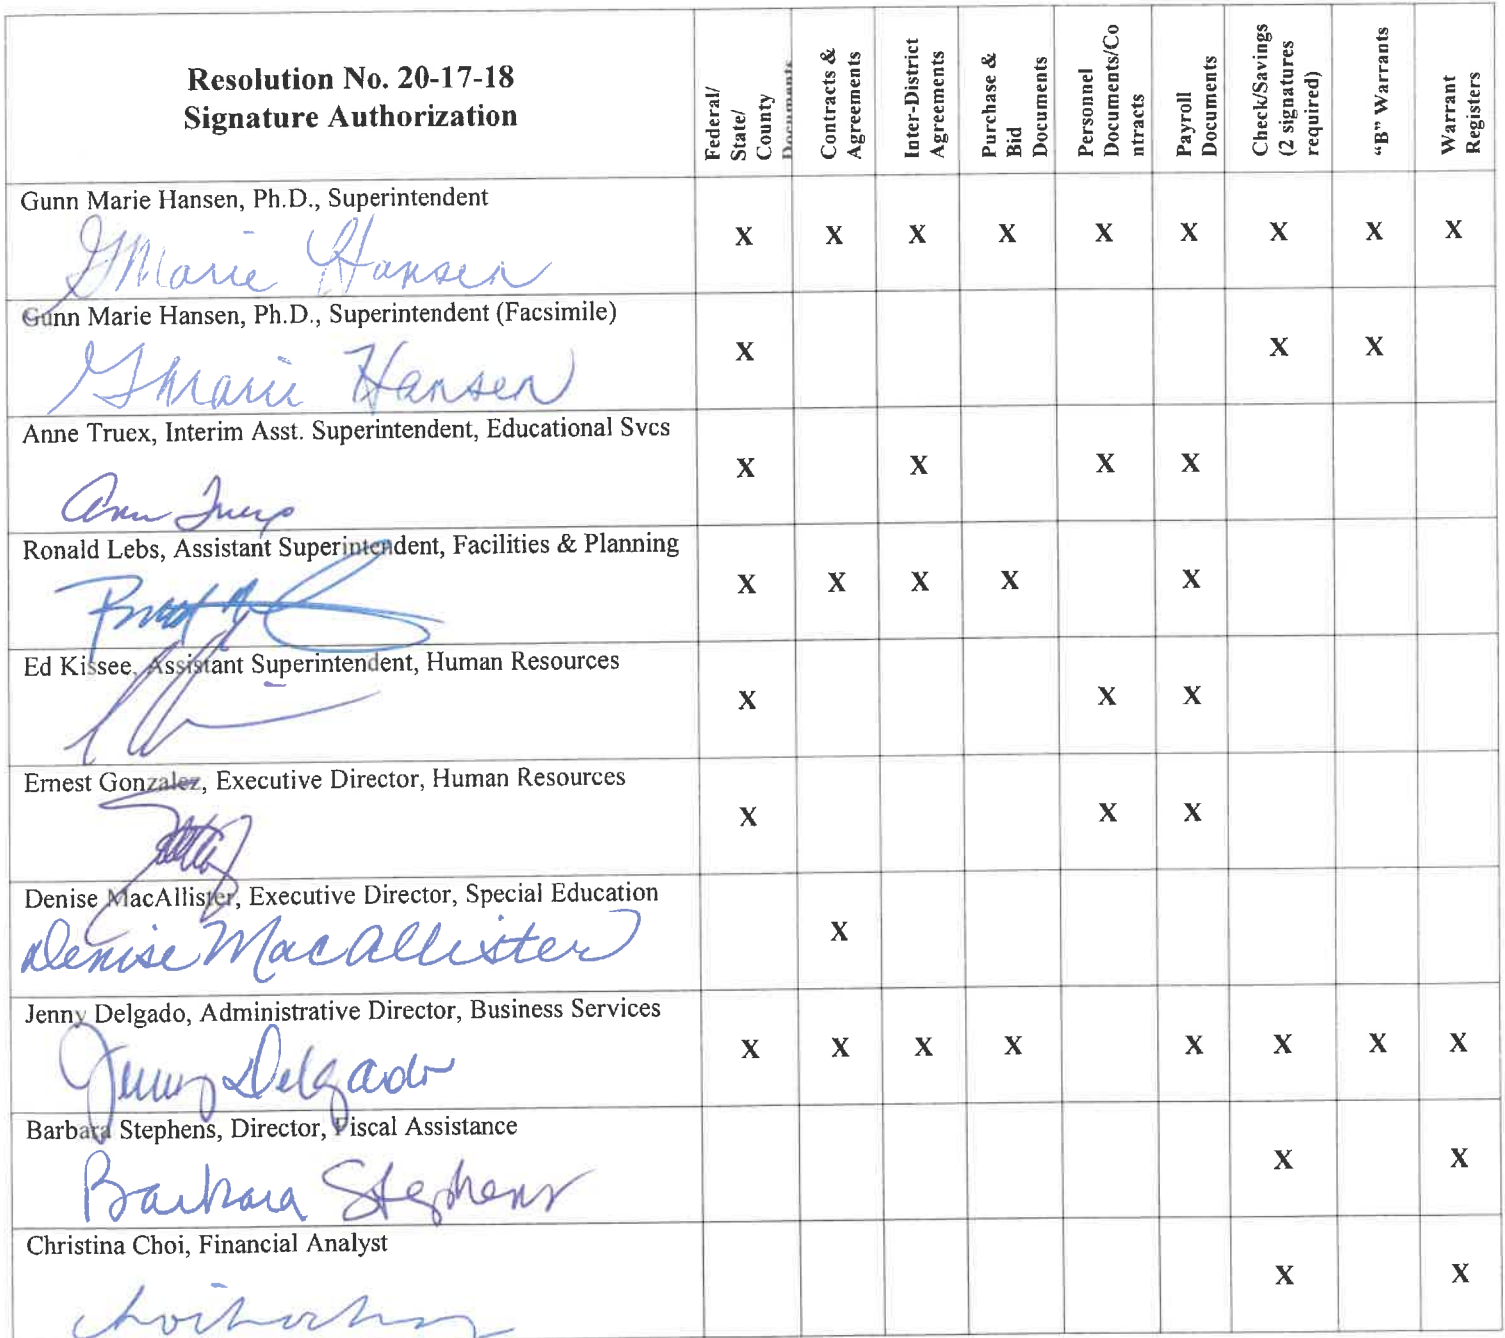 Resolution No. 20-17-18
Signature Authorization
Federal/
State/
County
Documents
Contracts &
Agreements
Inter-District
Agreements
Purchase &
Bid
Documents
Personnel
Documents/Co
ntracts
Payroll
Documents
Check/Savings
(2 signatures
required)
"B" Warrants
Warrant
Registers
Gunn Marie Hansen, Ph.D., Superintendent
GMarie Hansen
X X X X X X X X X
Gunn Marie Hansen, Ph.D., Superintendent (Facsimile)
GMarie Hansen
X X X
Anne Truex, Interim Asst. Superintendent, Educational Svcs
X X X X
Ronald Lebs, Assistant Superintendent, Facilities & Planning
X X X X X
Ed Kissee, Assistant Superintendent, Human Resources
X X X
Ernest Gonzalez, Executive Director, Human Resources
X X X
Denise MacAllister, Executive Director, Special Education
Denise MacAllister
X
Jenny Delgado, Administrative Director, Business Services
Jenny Delgado
X X X X X X X X
Barbara Stephens, Director, Fiscal Assistance
Barbara Stephens
X X
Christina Choi, Financial Analyst
X X